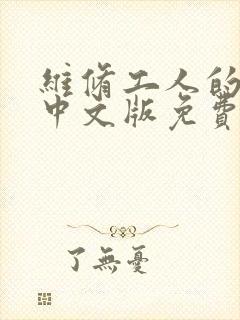 維脩工人的
中文版免費
了無憂